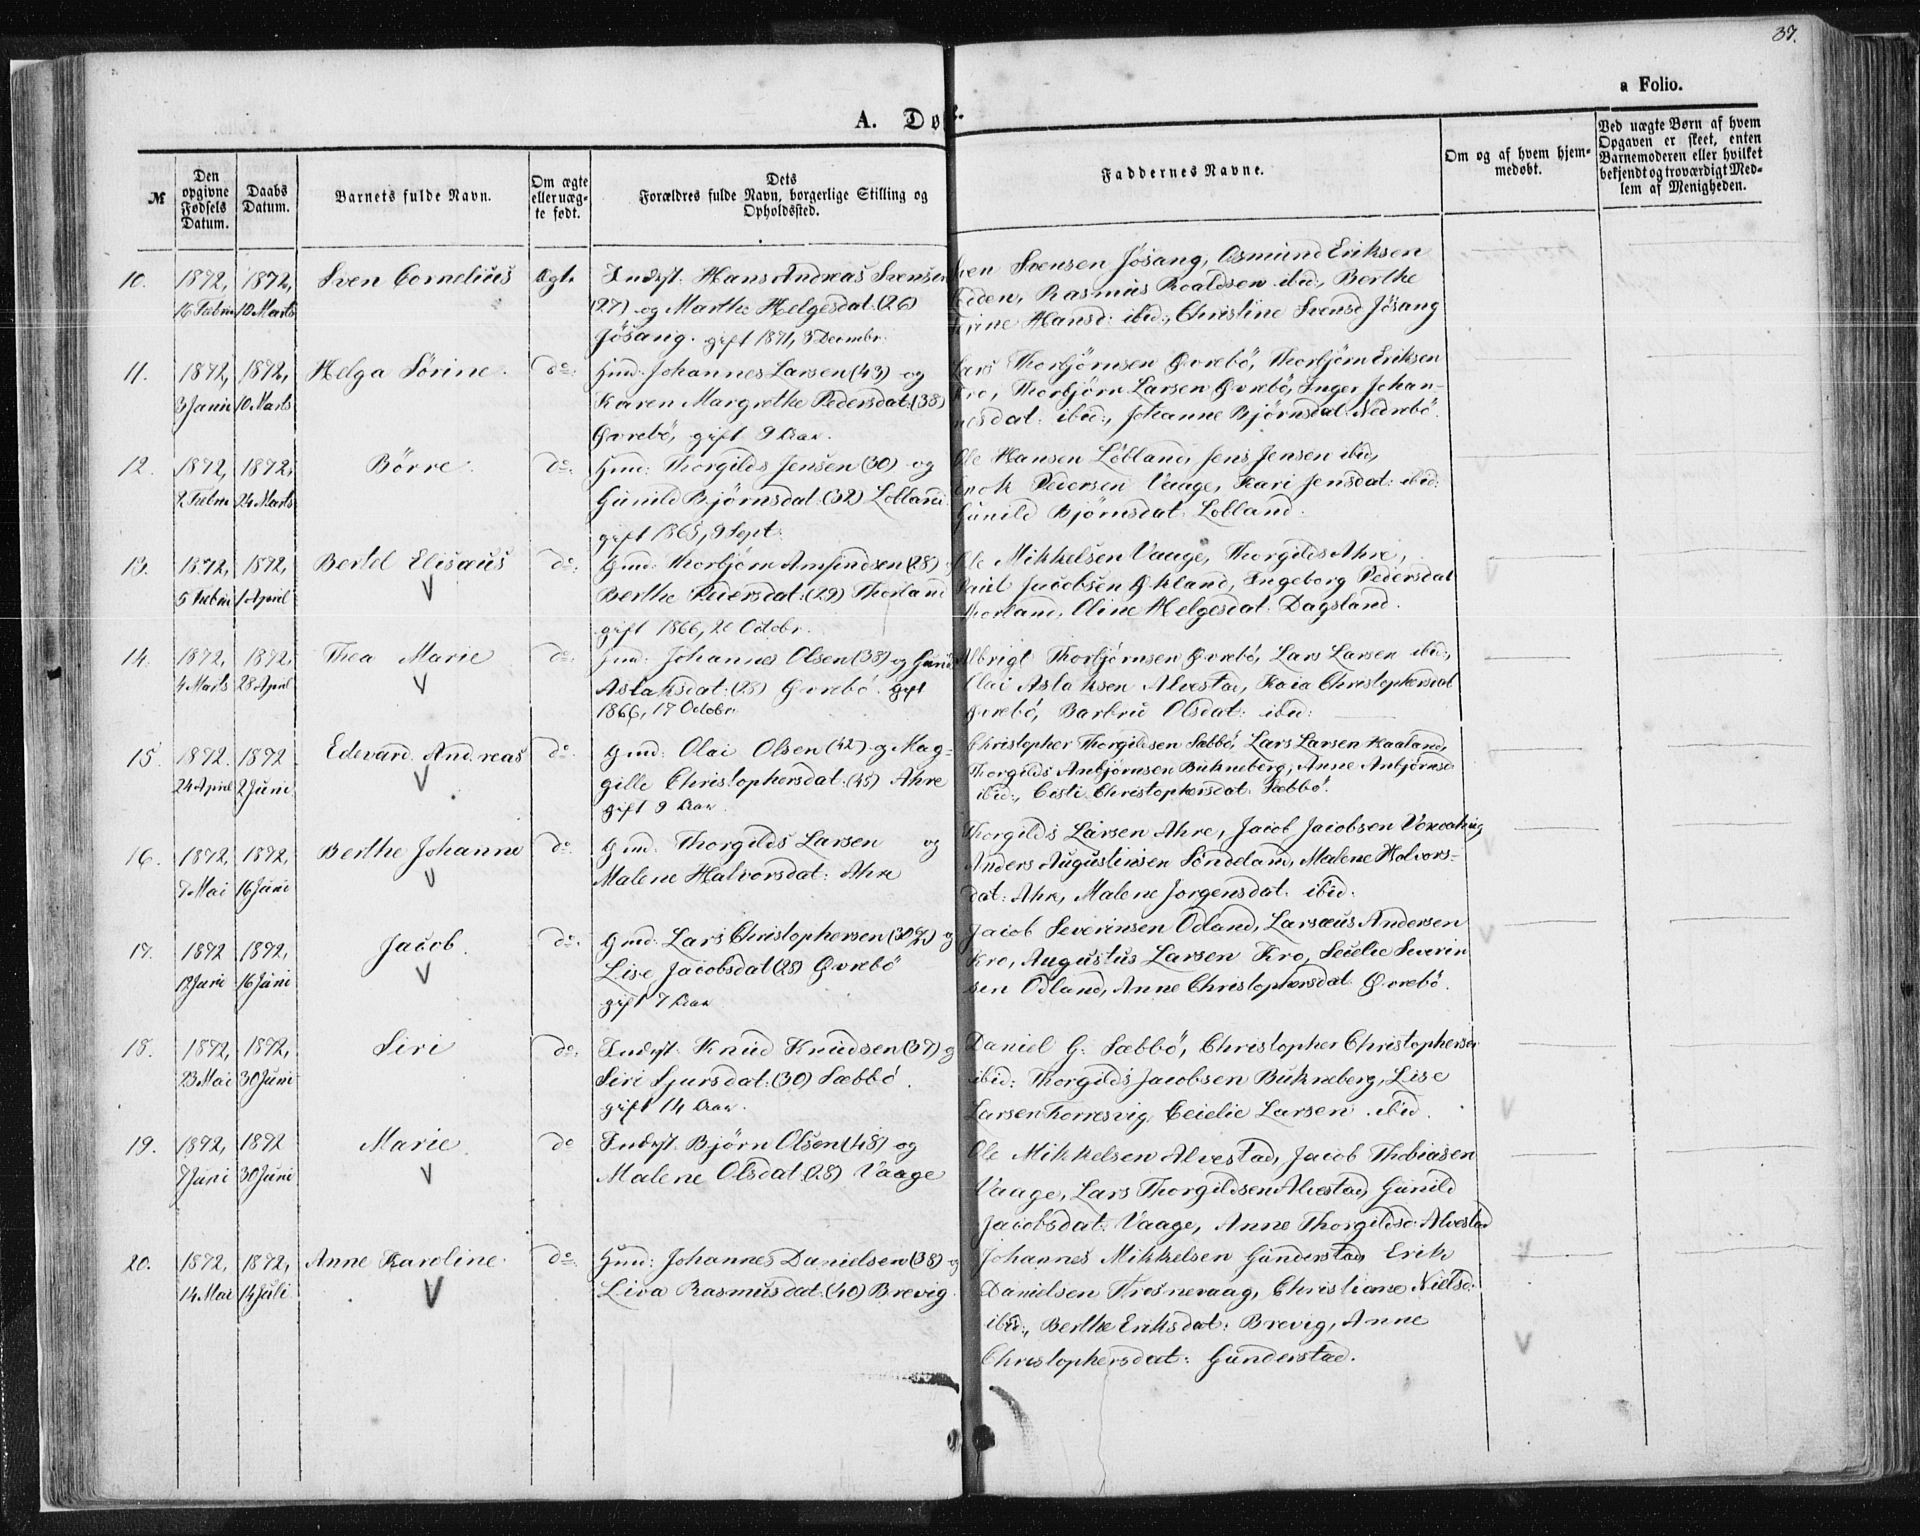 37.
a Folio.
A. Døb
№
Den opgivne Fødsels Datum.
Daabs Datum.
Barnets fulde Navn.
Om ægte eller uægte født.
Dets Forældres fulde Navn, borgerlige Stilling og Opholdssted.
Faddernes Navne.
Om og af hvem hjemmedøbt.
Ved uægte Børn af hvem Opgaven er skeet, enten Barnemoderen eller hvilket bekjendt og troværdigt Medlem af Menigheden.
10. 1872, 1872, Sven Cornelius Ægte Indst. Hans Andreas Svensen Sven Svensen Jøsang, Osmund Eriksen
16 Febm 10 Marts (27) og Marthe Helgesdat: (26) Rasmus Roaldsen ibid:, Berthe
Jøsang. gift 1871, 3 Decembr. Hansd: ibid:, Christine Svensd Jøsang
11. 1872, 1872, Helga Sørine. do: Gmd: Johannes Larsen (43) og Lars Thorbjørnsen Øvrebö, Thorbjørn Eriksen
3 Janu 10 Marts Karen Margrethe Pedersdat: (38) Kro, Thorbjørn Larsen Øvrebö, Inger Johan-
Øvrebö, gift 9 Aar. nesdat: ibid:, Johanne Bjørnsdat: Nedrebö.
12. 1872, 1872, Börre. do: Gmd: Thorgilds Jensen (30) og Ole Hansen Löbland, Jens Jensen ibid,
2 Febm 24 Marts Gunild Bjørnsdat: (32) Lobland. Enok Pedersen Vaage, Kari Jensdat: ibid:
gift 1865, 9 Sept. Gunild Bjørnsdat: Lobland.
13. 1872, 1872, Bertel Elisæus do: Gmd: Thorbjørn Amundsen (28) Ole Mikkelsen Vaage, Thorgilds Ahre,
5 Febm 1 April Berthe Pedersdat: (29) Thorland Paul Jacobsen Økland, Ingeborg Pedersdat
gift 1866, 20 Octobr. Thorland, Oline Helgesdat: Dagsland.
14. 1872, 1872, Thea Marie do: Gmd: Johannes Olsen (38) og Gunild Albrigt Thorbjørnsen Øvrebö, Lars Larsen ibid:,
4 Marts 28 April Aslaksdat: (28) Øvrebö. gift Olai Aslaksen Alvestad, Kaia Christophersdat
1866, 17 Octobr. Øvrebö, Barbru Olsdat: ibid:
15. 1872. 1872 Edevard Andreas do Gmd: Olai Olsen (42) og Mag- Christopher Thorgildsen Sæbbö, Lars Larsen Kaaland,
24 April 2 Juni gille Christophersdat: (45) Ahre Thorgilds Anbjørnsen Bukneberg, Anne Anbjørnsd
gift 9 Aar. ibid:, Christophersdat: Sæbbö.
16. 1872, 1872, Berthe Johanne do Gmd: Thorgilds Larsen og Thorgilds Larsen Ahre, Jacob Jacobsen
7 Mai 16 Juni Malene Halvorsdat: Ahre Anders Augustinsen Söndelam, Malene Halvors-
dat: Ahre, Malene Jorgensdat: ibid.
17. 1872 1872, Jacob. do: Gmd: Lars Christophersen (30½) og Jacob Severinsen Odland, Larsæus Andersen
12 Juni 16 Juni Lise Jacobsdat (28) Øvrebö Kro, Augustus Larsen Kro, Severin
gift 7 Aar sen Odland, Anne Christophersdat Øvrebö.
18. 1872, 1872, Siri do: Indst: Knud Knudsen (37) og Daniel G. Sæbbö, Christopher Christophersen
23 Mai 30 Juni Siri Sjursdat: (30) Sæbbö. ibid: Thorgilds Jacobsen Bukneberg, Lise
gift 14 Aar. Larsen Torresvig, Larsen ibid.
19. 1872, 1872 Marie. do Indst. Bjørn Olsen (48) og Ole Mikkelsen Alvestad, Jacob Thobiasen
7 Juni 30 Juni Malene Olsdat: (28) Vaage Vaage, Lars Thorgildsen Alvestad, Gunild
Jacobsdat: Vaage, Anne Thorgildsd: Alvestad
20. 1872, 1872, Anne Karoline. do: Gmd: Johannes Danielsen (38) og Johannes Mikkelsen Gunderstad, Erik
14 Mai 14 Juli Liva Rasmusdat: (40) Brevig. Danielsen Trosnevaag, Christiane Nielsd:
ibid:, Berthe Eriksdat: Brevig, Anne
Christophersdat: Gunderstad.